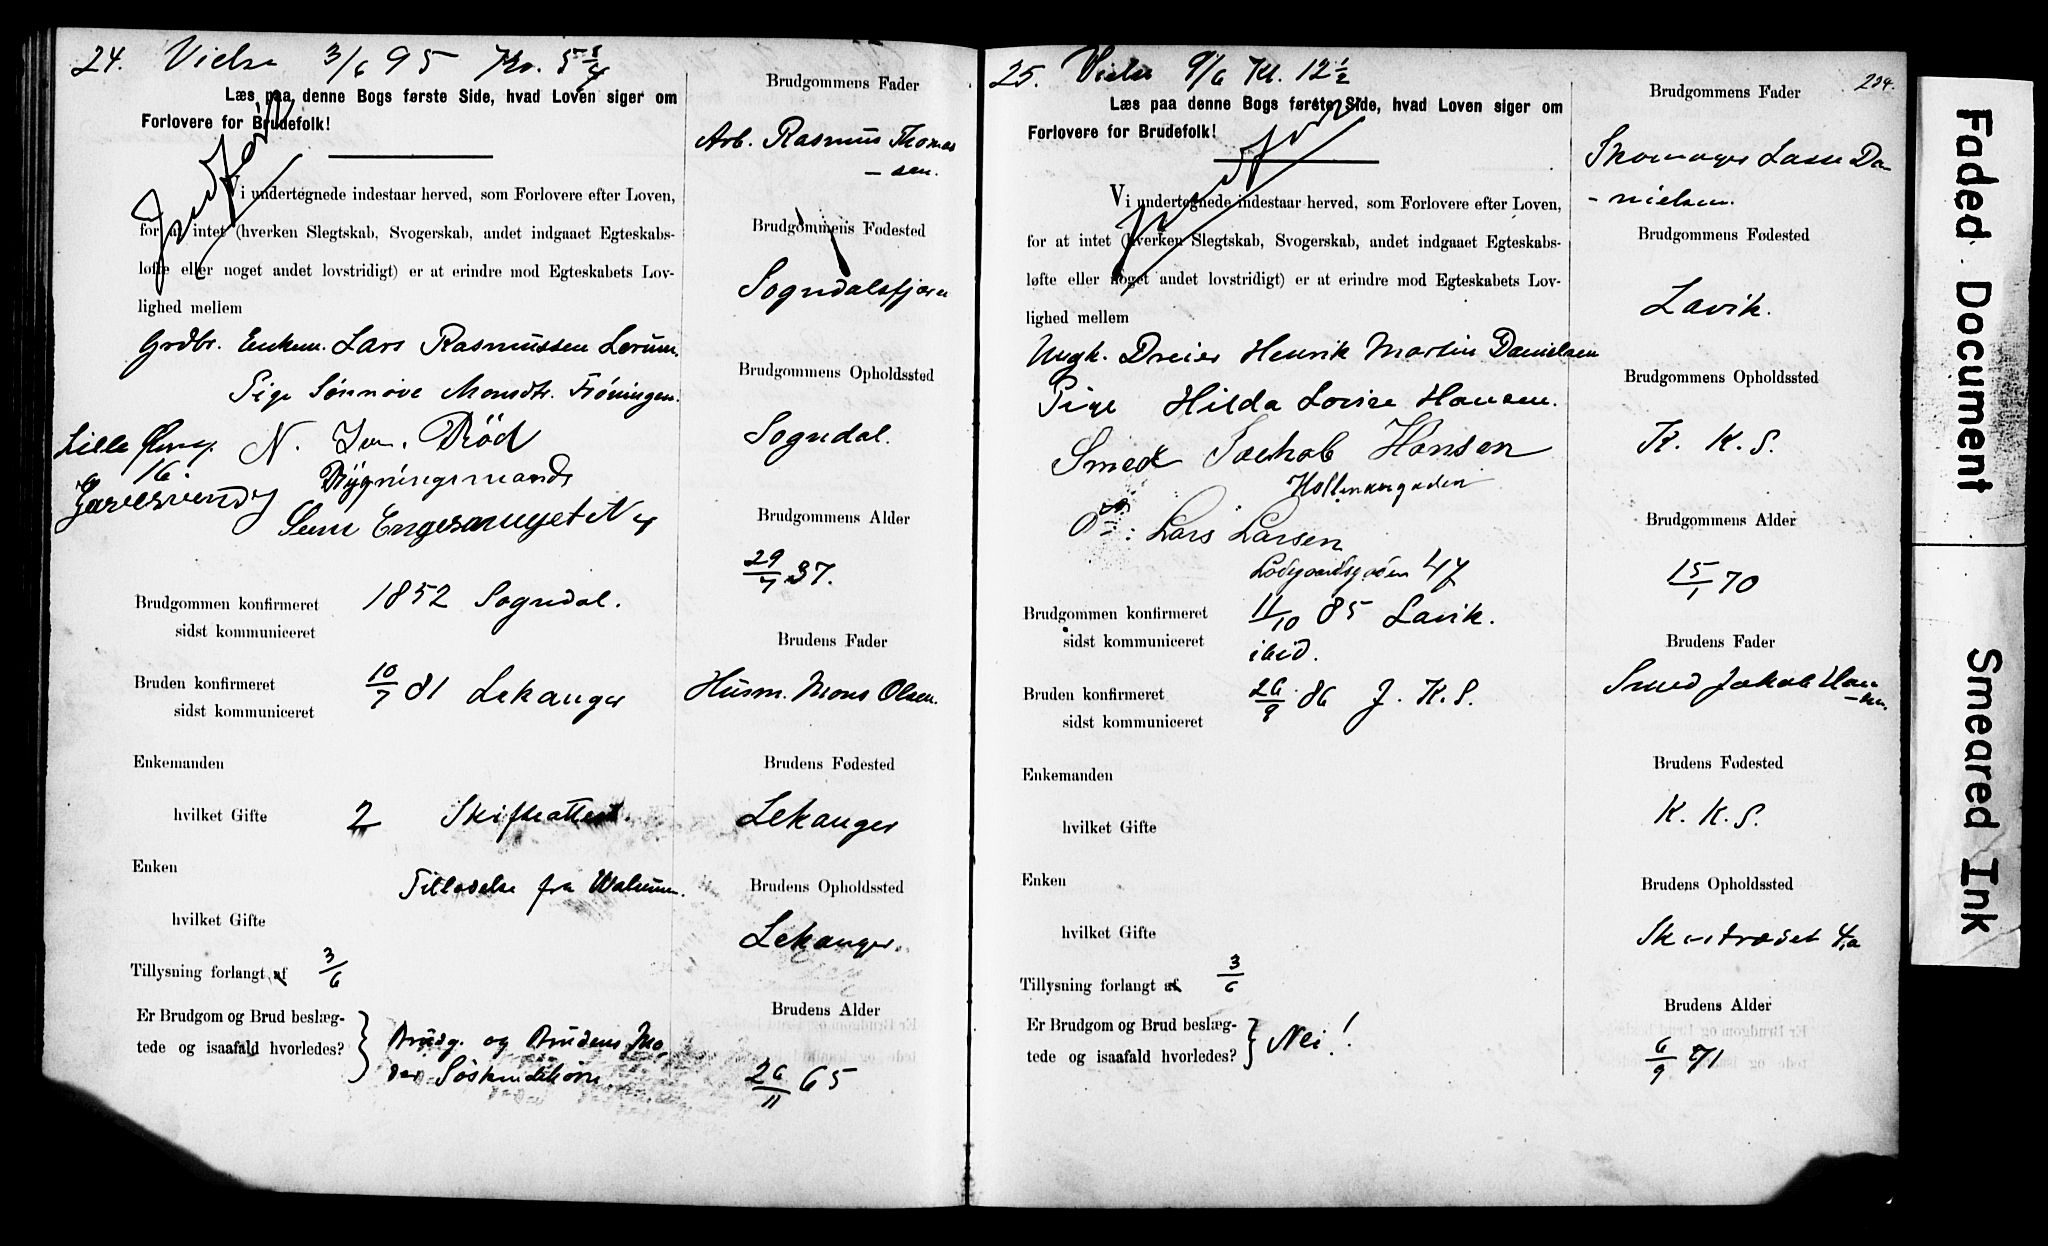 24. Vielse 3/6 95 Kl. 5 3/4
Læs paa denne Bogs første Side, hvad Loven siger om
Forlovere for Brudefolk!
Vi undertegnede indestaar herved, som Forlovere efter Loven,
for at intet (hverken Slegtskab, Svogerskab, andet indgaaet Egteskabs-
løfte eller noget andet lovstridigt) er at erindre mod Egteskabets Lov-
lighed mellem
Grdbr. Enkem. Lars Rasmussen Lerum.
Pige Sønnove Monsdtr. Frønningen.
Lille Øvreg. N. Rød
16. Bygningsmand
Engesmuget N 4
Brudgommen konfirmeret 1852 Sogndal.
sidst kommuniceret
Bruden konfirmeret 10/7 81 Lekanger
sidst kommuniceret
Enkemanden
hvilket Gifte 2 Skifteattest.
Enken
Tilladelse fra
hvilket Gifte
Tillysning forlangt af 3/6
Er Brudgom og Brud beslæg-
tede og isaafald hvorledes?
Brudg. og Brudens Mo-
der Søskendebørn.
Brudgommens Fader
Arb. Rasmus Thomas
- sen.
Brudgommens Fødested
Sogndalsfjæren
Brudgommens Opholdssted
Sogndal.
Brudgommens Alder
29/7 37.
Brudens Fader
Husm. Mons Olsen.
Brudens Fødested
Lekanger
Brudens Opholdssted
Lekanger.
Brudens Alder
26/11 65
25. Vielse 9/6 Kl. 12 1/2
Læs paa denne Bogs første Side, hvad Loven siger om
Forlovere for Brudefolk!
Vi undertegnede indestaar herved, som Forlovere efter Loven,
for at intet (hverken Slegtskab, Svogerskab, andet indgaaet Egteskabs-
løfte eller noget andet lovstridigt) er at erindre mod Egteskabets Lov-
lighed mellem
Ungk. Dreier Henrik Martin Danielsen
Pige Hilda Lovise Hansen.
Smed Jackob Hansen
Hollendergaden
Lars Larsen
Ladegaardsgaden 47
Brudgommen konfirmeret 11/10 85 Lavik.
sidst kommuniceret ibid.
Bruden konfirmeret 26/9 86 J. K. S.
sidst kommuniceret
Enkemanden
hvilket Gifte
Enken
hvilket Gifte
Tillysning forlangt af 3/6
Er Brudgom og Brud beslæg-
tede og isaafald hvorledes?
Nei!
224.
Brudgommens Fader
Skomager Lasse Da
- nielsen.
Brudgommens Fødested
Lavik.
Brudgommens Opholdssted
K. K. S.
Brudgommens Alder
15/1 70
Brudens Fader
Smed Jakob Han
- sen.
Brudens Fødested
K. K. S.
Brudens Opholdssted
4a
Brudens Alder
6/9 71
Faded Document
Smeared Ink